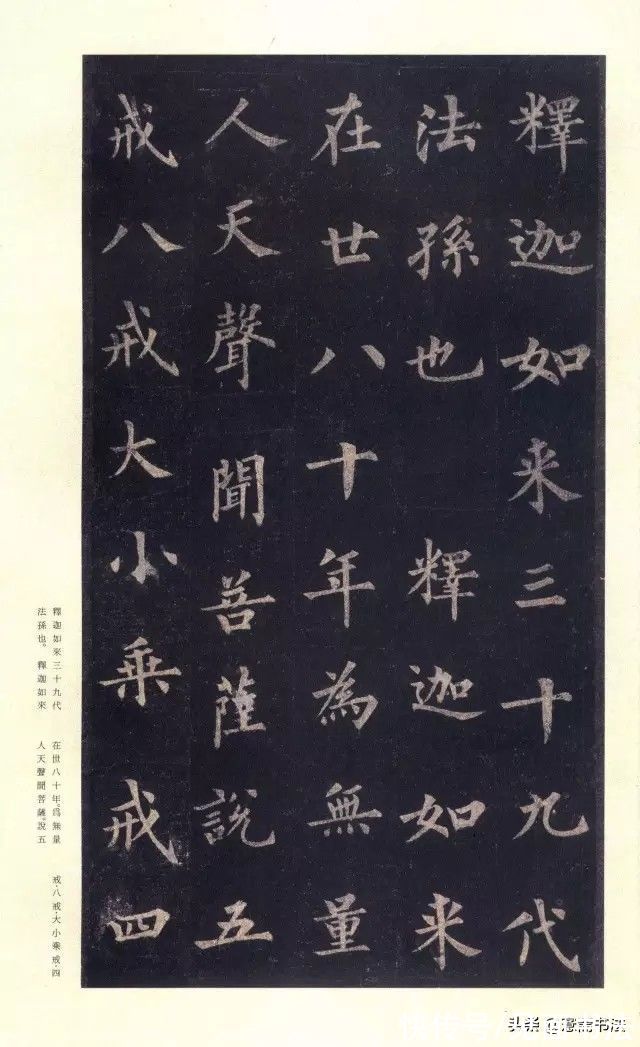 釋迦如来三十九代
法孫也釋迦如来
在世八十年為無量
人天聲聞菩薩說五
戒八戒大小乘戒四
釋迦如來三十九代
法孫也。釋迦如來
在世八十年。爲無量
人天聲聞菩薩。說五
戒·八戒·大小乘戒·四